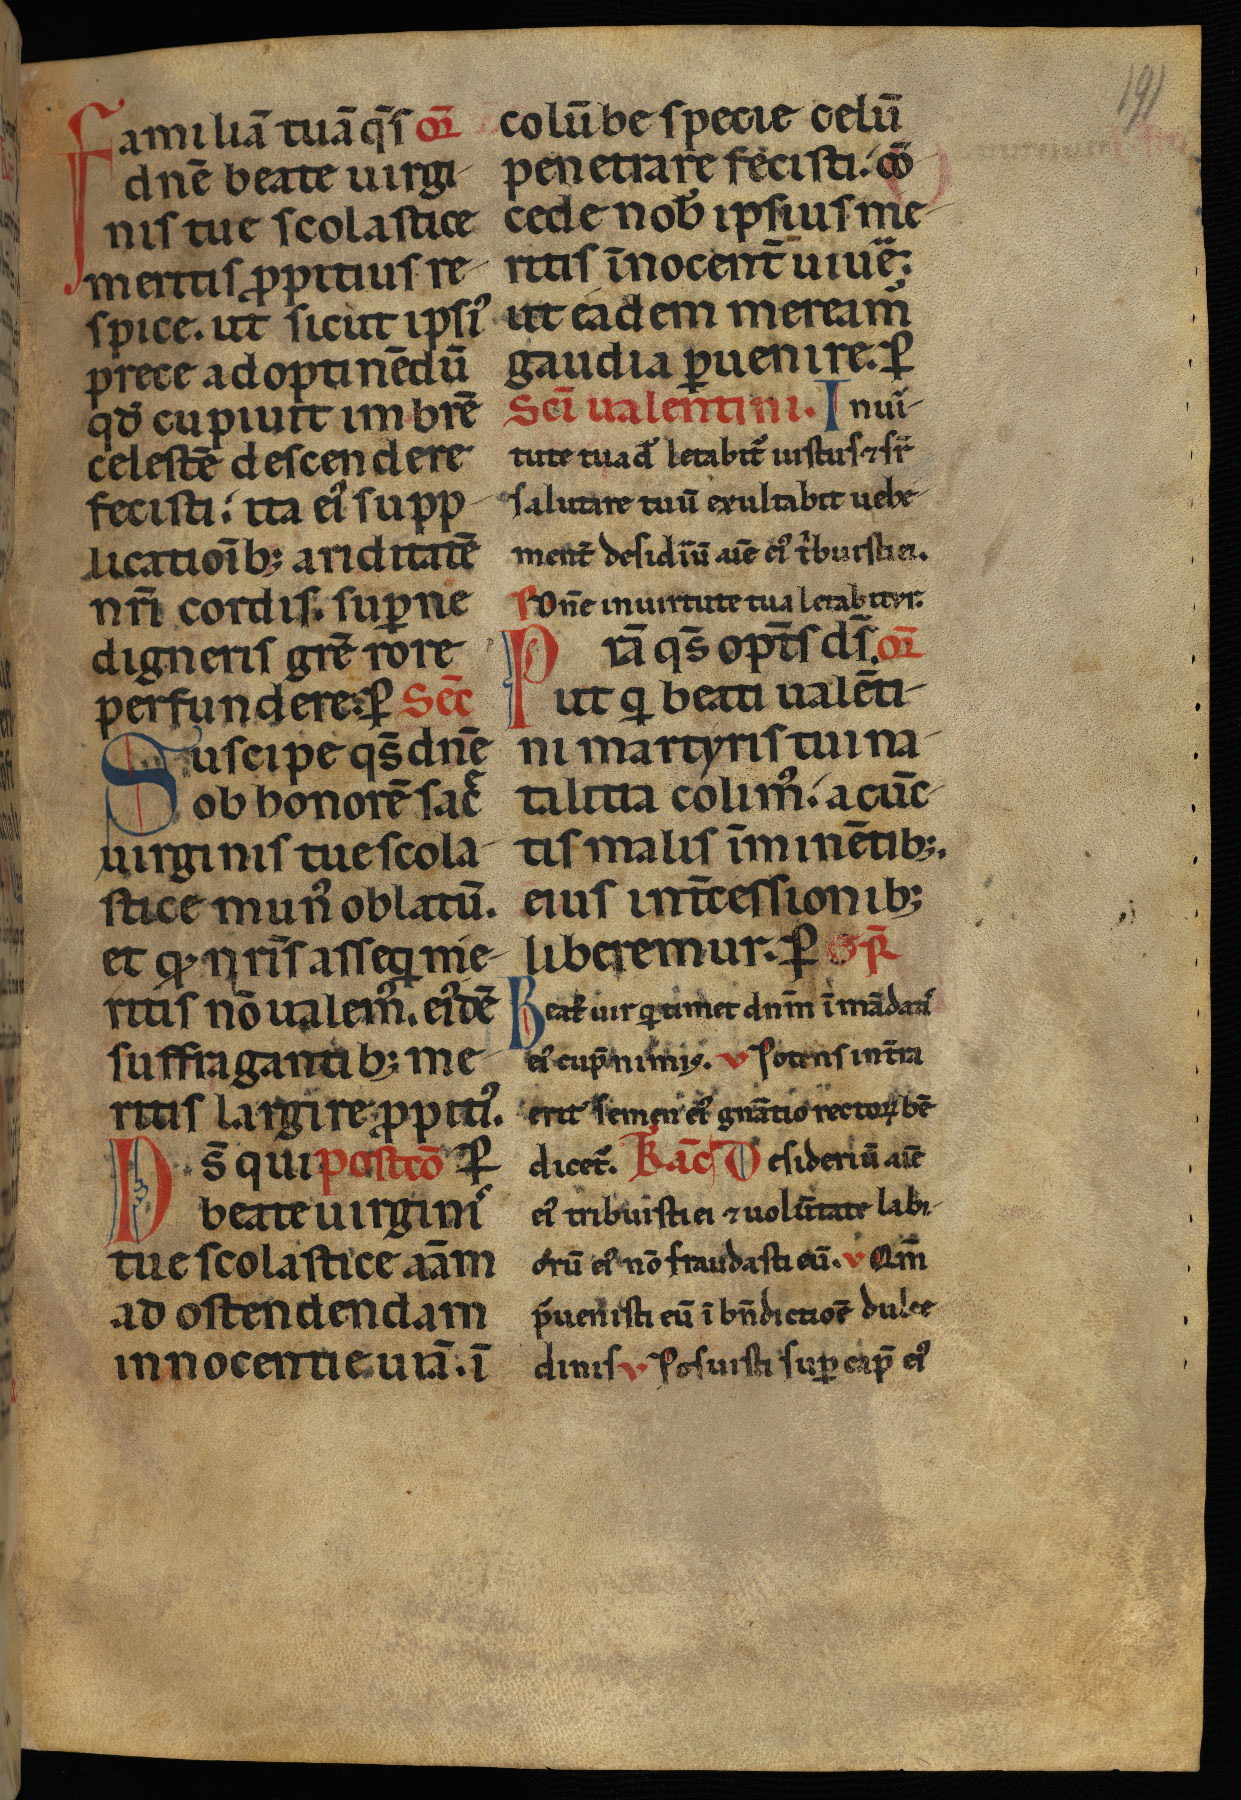 191
Familiā tuā q̄s or̄
dn̄e beate uirgi-
nis tue scolastice
meritis ꝓpitius re-
spice. ut sicut ipsi᷒
prece ad optinēdū
qd̄ cupiuit imbrē
celestē descendere
fecisti: ita ei᷒ supp-
licatiōib; ariditatē
nr̄i cordis. suꝑne
digneris gr̄e rore
perfundere. ꝑ Sec̄
Suscipe q̄s dn̄e
ob honorē sac̄
uirginis tue scola-
stice mun᷒ oblatū.
et qɔ nr̄is asseqi me-
ritis nō ualem᷒. ei᷒dē
suffragantib; me-
ritis largire ꝓpiti᷒.
Ds̄ qui postcō ꝑ
beate uirgini᷒
tue scolastice aīam
ad ostendendam
innocentie uiā. ī
colūbe specie celū
penetrare fecisti: cō-
cede nob̄ ipsius me-
ritis īnocent̄ uiuē;
ut eadem meream᷒
gaudia ꝑuenire. ꝑ
Sc̄i ualentini. In uir̄-
tute tua d̄ letabit᷒ iustus ⁊ sr̄
salutare tuū exultabit uehe-
ment̄ desidīū aīe ei᷒ t'buisti ei.
P̄ Dn̄e in uirtute tua letabitur.
Pr̄a q̄s opt̄s ds̄. or̄
ut qi beati ualēti-
ni martyris tui na-
talitia colim᷒: a cūc-
tis malis īminētib;.
eius int̄cessionib;
liberemur. ꝑ Gr̄
Beat᷒ uir qi timet dn̄m ī mādati᷒
ei᷒ cup̄ nimis. v Potens in t̄ra
erit semen ei᷒ gn̄atio rectoꝝ bn̄-
dicet᷒. Tr̄ac̄ Desideriū aīe
ei᷒ tribuisti ei ⁊ uolūtate labi-
orū ei᷒ nō fraudasti eū. v Qm̄
p̄uenisti eū ī bn̄dictiōe dulce-
dinis v Posuisti suꝑ cap̄ ei᷒